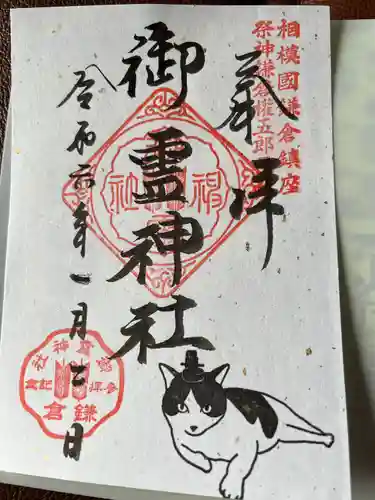 相模國鎌倉鎮座
祭神鎌倉権五郎
奉拝
御霊神社
令和六年一月三日
鎌倉